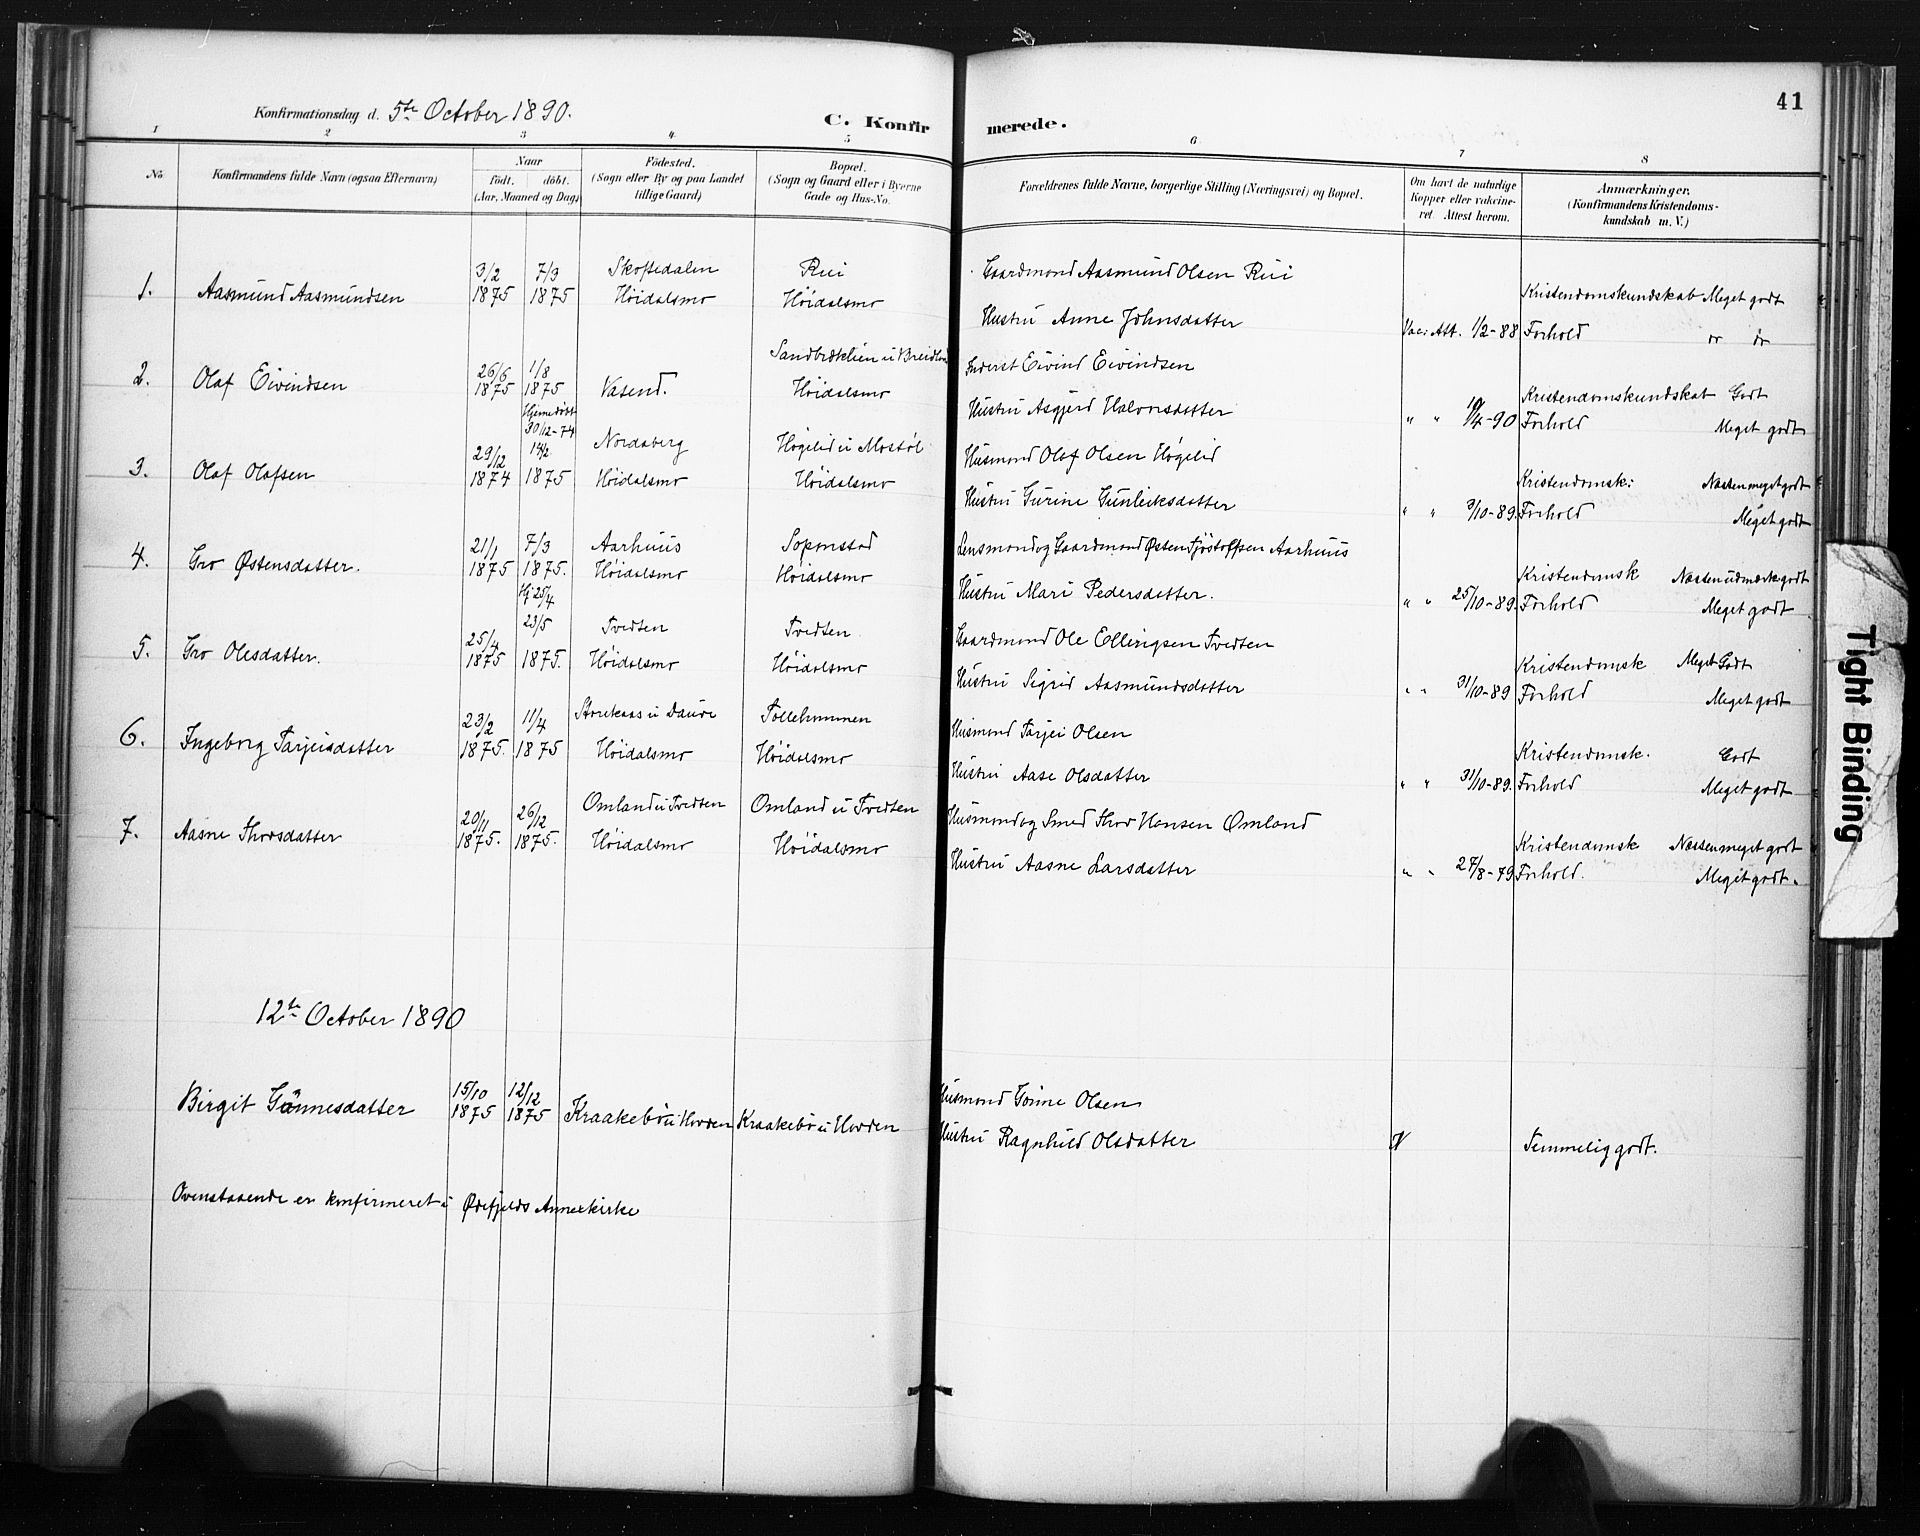 41
Konfirmationsdag d. 5te October 1890.
C. Konfirmerede.
1 2 3 4 5 6 7 8
No
Konfirmandens fulde Navn (ogsaa Efternavn)
Naar
født. døbt.
(Aar, Maaned og Dag)
Fødested.
(Sogn eller By og paa Landet
tillige Gaard)
Bopæl.
(Sogn og Gaard eller i Byerne
Gade og Hus-No.
Forældrenes fulde Navne, borgerlige Stilling (Næringsvei) og Bopæl.
Om havt de naturlige
Kopper eller vakcine-
ret. Attest herom.
Anmærkninger.
(Konfirmandens Kristendoms-
kundskab m. V.)
3/2 7/3 Skoftedalen Rui Gaardmand Aasmund Olsen Rui
1. Aasmund Aasmundsen 1875 1875 Høidalsmo Høidalsmo Kristendomskundskab Meget godt
Hustru Anne Johnsdatter Vac: Att. 1/2-88 Forhold
26/6 1/8 Inderst Eivind Eivindsen
2. Olaf Eivindsen 1875 1875 Vasend. Høidalsmo Kristendomskundskab Godt
Hustru Asgjerd Halvorsdatter " " -90 Forhold Meget godt
Hjemedøbt
30/12-74
29/12 14/2 Nordaberg Høgelid u Mostøl Husmand Olaf Olsen Høgelid
3. Olaf Olafsen 1874 1875 Høidalsmo Høidalsmo Kristendomsk: Næsten meget godt
Hustru Gurine Gunleiksdatter " " 3/10-89. Forhold Meget godt
21/1 7/3 Aarhuus Lensmand og Gaardmand Østen Tjøstolfsen Aarhuus
4. Gro Østensdatter. 1875 1875. Høidalsmo Høidalsmo Kristendomsk Næsten udmærk godt
Hj 25/4
Hustru Mari Pedersdatter. " " 25/10-89. Forhold Meget godt
25/4 23/5 Tvedten Tvedten Gaardmand Ole Ellingsen Tvedten
5. Gro Olesdatter. 1875 1875. Høidalsmo Høidalsmo Kristendomsk Meget Godt
Hustru Sigrid Aasmundsdatter " " 31/10-89 Forhold Meget godt
23/2 11/4 Husmand Tarjei Olsen
6. Ingeborg Tarjeisdatter 1875. 1875 Høidalsmo Høidalsmo Kristendomsk. Godt
Hustru Aase Olsdatter " " 31/10-89. Forhold Meget godt
20/11 26/12 Omland u Tvedten Omland u Tvedten Husmand og Smed Thor Hansen Omland
7. Aasne Thorsdatter 1875. 1875. Høidalsmo Høidalsmo Kristendomsk Næsten meget godt
Hustru Aasne Larsdatter " " 27/8-79 Forhold. Meget godt.
12te October 1890
15/10 12/12 Husmand Gunne Olsen
Birgit Gunnesdatter 1875 1875 Kraakebø u Hovden Kraakebø u Hovden
Hustru Ragnhild Olsdatter V Temmelig godt.
Ovenstaaende er konfirmeret i Øifjelds Annexkirke
Tight Binding